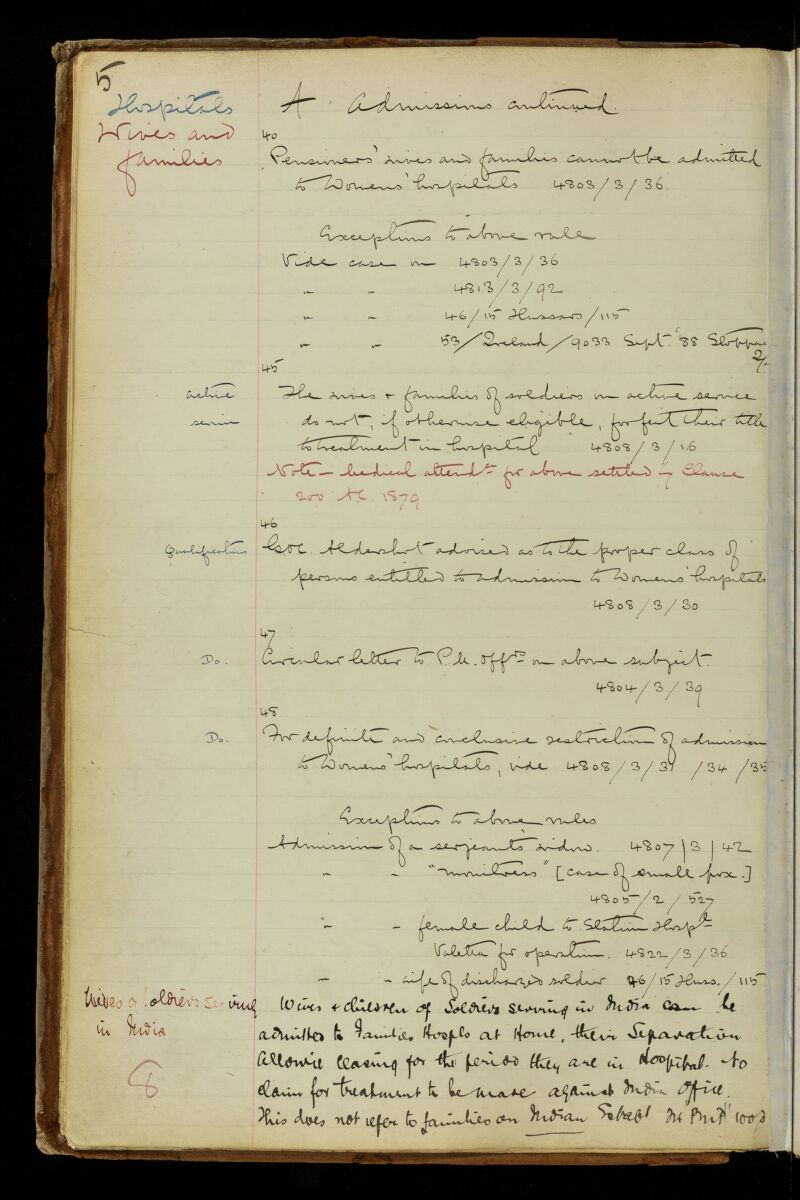 5
Hospitals
Wives and
families
A Admissions continued
40
Pensioners' wives and families cannot be admitted
to Womens' hospitals 4803/3/36.
Exceptions to above rule
Vide case on 4803/3/36
" " 4813/3/92
" " 46/15 Hussars/115
" " 53/Ireland/9033 Sept. '88
45
active
service
The wives & families of soldiers on active service
do not, if otherwise eligible, forfeit their title
to treatment in hospital 4808/3/16
Note — Medical attendce for above settled by Clause
200 A.C. 1879
46
Qualifications
G.O.C. Aldershot advised as to the proper class of
persons entitled to admission to Womens' hospitals
4808/3/30
47
Do.
Circular letter to P.M. Offrs on above subject.
4804/3/39
48
Do.
For definite and conclusive restriction of admission
to Womens' hospitals, vide 4808/3/31 /34 /35
Exceptions to above rules
Admission of a serjeant's widow. 4807/3/42
" " "monitress" [case of small pox.]
4805/2/527
" " female child to Station Hospl
Valetta for operation. 4822/3/36
" " wife of discharged soldier 46/15 Huss./115
Wives of soldiers serving
in India
8
Wives & children of Soldiers serving in India can be
admitted to Families Hospls at Home, their Separation
Allowce ceasing for the period they are in Hospital. No
claim for treatment to be made against India Office.
This does not refer to families on Indian